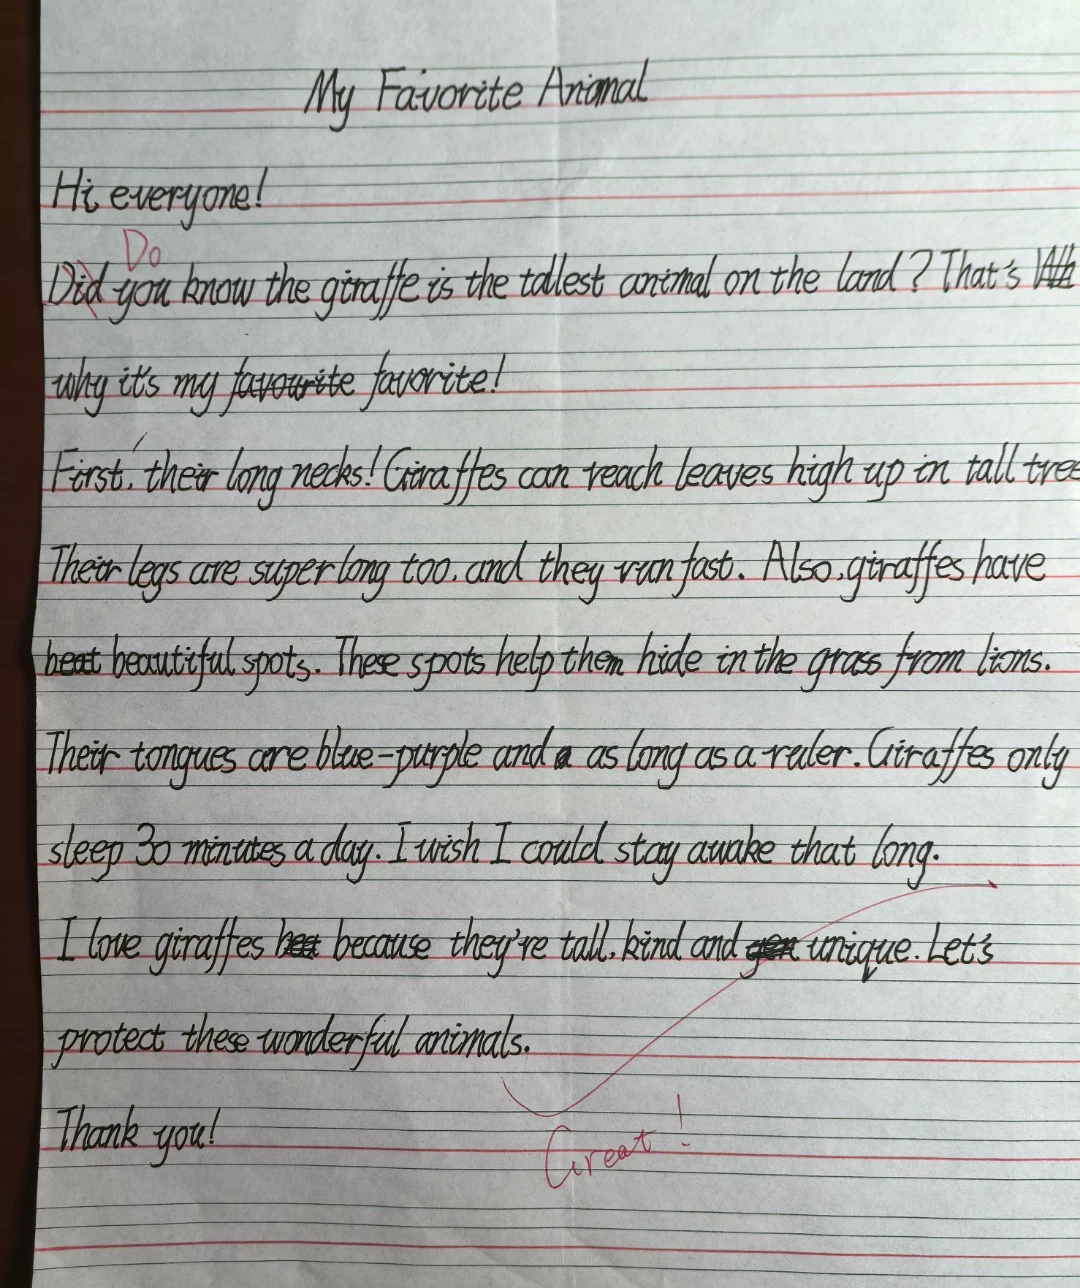 My Favorite Animal
Hi everyone!
Do
Did you know the giraffe is the tallest animal on the land? That's Wh
why it's my favourite favorite!
First, their long necks! Giraffes can reach leaves high up in tall tree
Their legs are super long too, and they run fast. Also, giraffes have
beat beautiful spots. These spots help them hide in the grass from lions.
Their tongues are blue-purple and a as long as a ruler. Giraffes only
sleep 30 minutes a day. I wish I could stay awake that long.
I love giraffes because they're tall, kind and unique. Let's
protect these wonderful animals.
Thank you!
Great!